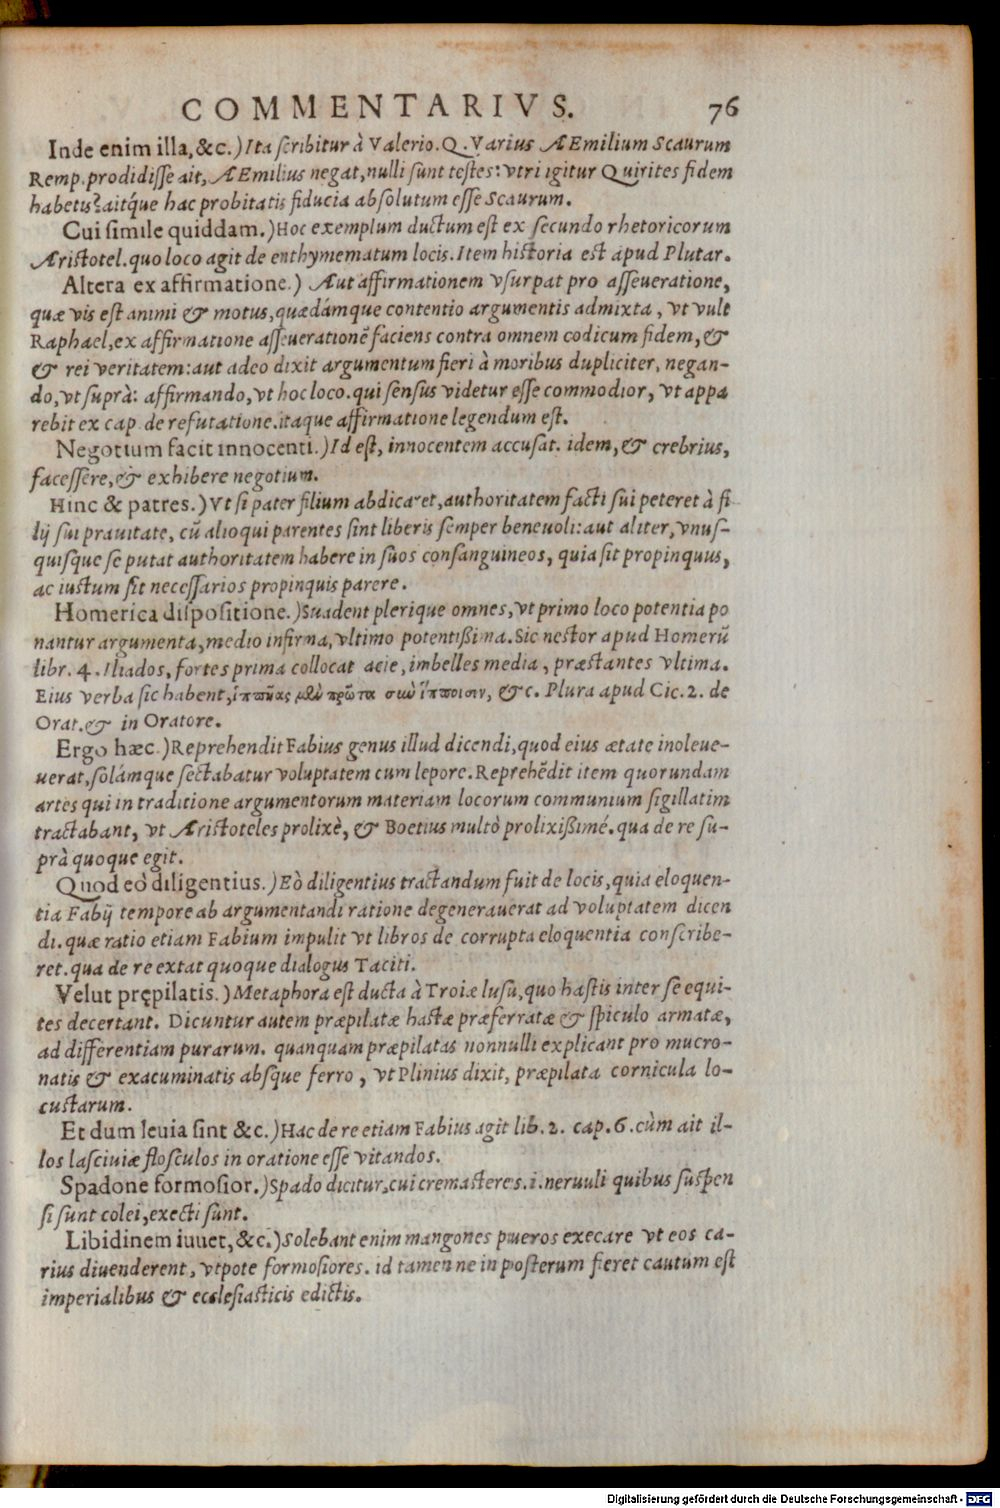 COMMENTARIVS. 76
Inde enim illa, &c.) Ita scribitur à Valerio. Q. Varius AEmilium Scaurum
Remp. prodidisse ait, AEmilius negat, nulli sunt testes: vtri igitur Quirites fidem
habetis? aitq́ue hac probitatis fiducia absolutum esse Scaurum.
Cui simile quiddam.) Hoc exemplum ductum est ex secundo rhetoricorum
Aristotel. quo loco agit de enthymematum locis. Item historia est apud Plutar.
Altera ex affirmatione.) Aut affirmationem vsurpat pro asseueratione,
quæ vis est animi & motus, quædámque contentio argumentis admixta, vt vult
Raphael, ex affirmatione asseuerationẽ faciens contra omnem codicum fidem, &
& rei veritatem: aut adeo dixit argumentum fieri à moribus dupliciter, negan-
do, vt suprà: affirmando, vt hoc loco. qui sensus videtur esse commodior, vt appa
rebit ex cap. de refutatione. itaque affirmatione legendum est.
Negotium facit innocenti.) Id est, innocentem accusat. idem, & crebrius,
facessere, & exhibere negotium.
Hinc & patres.) Vt si pater filium abdicaret, authoritatem facti sui peteret à fi
lij sui prauitate, cũ alioqui parentes sint liberis semper beneuoli: aut aliter, vnus-
quisque se putat authoritatem habere in suos consanguineos, quia sit propinquus,
ac iustum sit necessarios propinquis parere.
Homerica dispositione.) Suadent plerique omnes, vt primo loco potentia po
nantur argumenta, medio infirma, vltimo potentißima. Sic nestor apud Homerũ
libr. 4. Iliados, fortes prima collocat acie, imbelles media, præstantes vltima.
Eius verba sic habent, ἱππῆας μὲν πρῶτα σὺν ἵπποισιν, &c. Plura apud Cic. 2. de
Orat. & in Oratore.
Ergo hæc.) Reprehendit Fabius genus illud dicendi, quod eius ætate inoleue-
uerat, solámque sectabatur voluptatem cum lepore. Reprehẽdit item quorundam
artes qui in traditione argumentorum materiam locorum communium sigillatim
tractabant, vt Aristoteles prolixè, & Boetius multò prolixißimé. qua de re su-
prà quoque egit.
Quod eò diligentius.) Eò diligentius tractandum fuit de locis, quia eloquen-
tia Fabij tempore ab argumentandi ratione degenerauerat ad voluptatem dicen
di. quæ ratio etiam Fabium impulit vt libros de corrupta eloquentia conscribe-
ret. qua de re extat quoque dialogus Taciti.
Velut prępilatis.) Metaphora est ducta à Troiæ lusu, quo hastis inter se equi-
tes decertant. Dicuntur autem præpilatæ hastæ præferratæ & spiculo armatæ,
ad differentiam purarum. quanquam præpilatas nonnulli explicant pro mucro-
natis & exacuminatis absque ferro, vt Plinius dixit, præpilata cornicula lo-
custarum.
Et dum leuia sint &c.) Hac de re etiam Fabius agit lib. 2. cap. 6. cùm ait il-
los lasciuiæ flosculos in oratione esse vitandos.
Spadone formosior.) Spado dicitur, cui cremasteres .i. neruuli quibus suspen
si sunt colei, execti sunt.
Libidinem iuuet, &c.) Solebant enim mangones pueros execare vt eos ca-
rius diuenderent, vtpote formosiores. id tamen ne in posterum fieret cautum est
imperialibus & ecclesiasticis edictis.
Digitalisierung gefördert durch die Deutsche Forschungsgemeinschaft - DFG